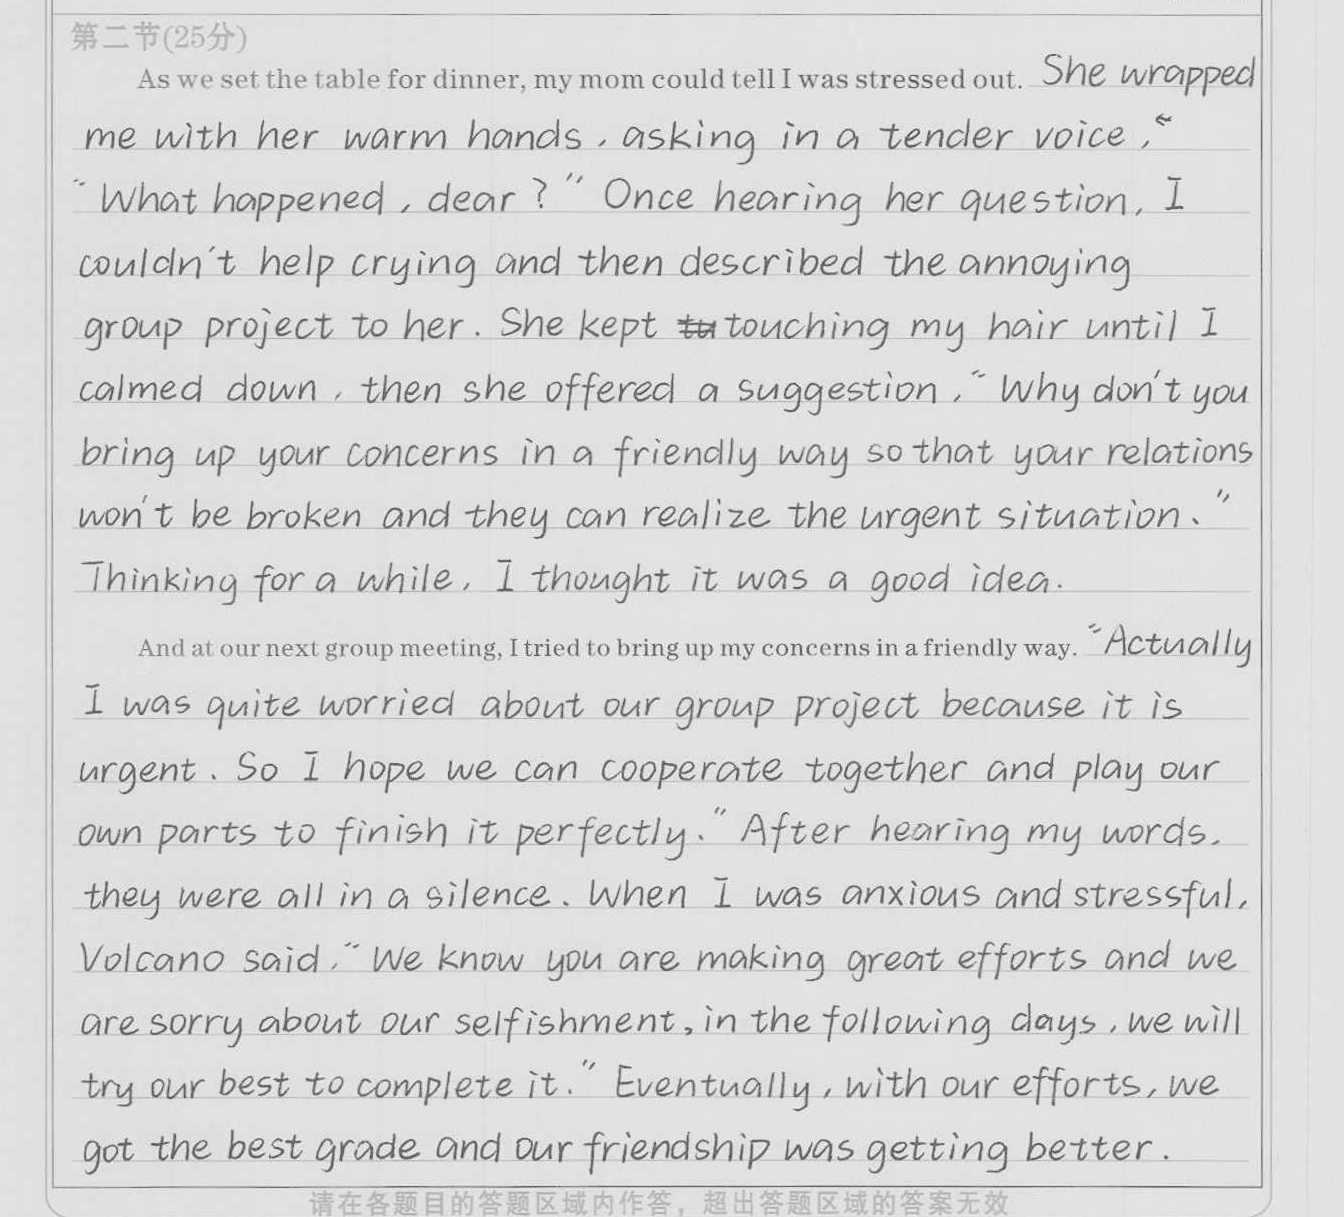 第二节(25分)
As we set the table for dinner, my mom could tell I was stressed out. She wrapped
me with her warm hands, asking in a tender voice,“
“What happened, dear?” Once hearing her question, I
couldn't help crying and then described the annoying
group project to her. She kept touching my hair until I
calmed down, then she offered a suggestion,“Why don't you
bring up your concerns in a friendly way so that your relations
won't be broken and they can realize the urgent situation.”
Thinking for a while, I thought it was a good idea.
And at our next group meeting, I tried to bring up my concerns in a friendly way. “Actually
I was quite worried about our group project because it is
urgent. So I hope we can cooperate together and play our
own parts to finish it perfectly.” After hearing my words,
they were all in a silence. When I was anxious and stressful,
Volcano said,“We know you are making great efforts and we
are sorry about our selfishment, in the following days, we will
try our best to complete it.” Eventually, with our efforts, we
got the best grade and our friendship was getting better.
请在各题目的答题区域内作答，超出答题区域的答案无效